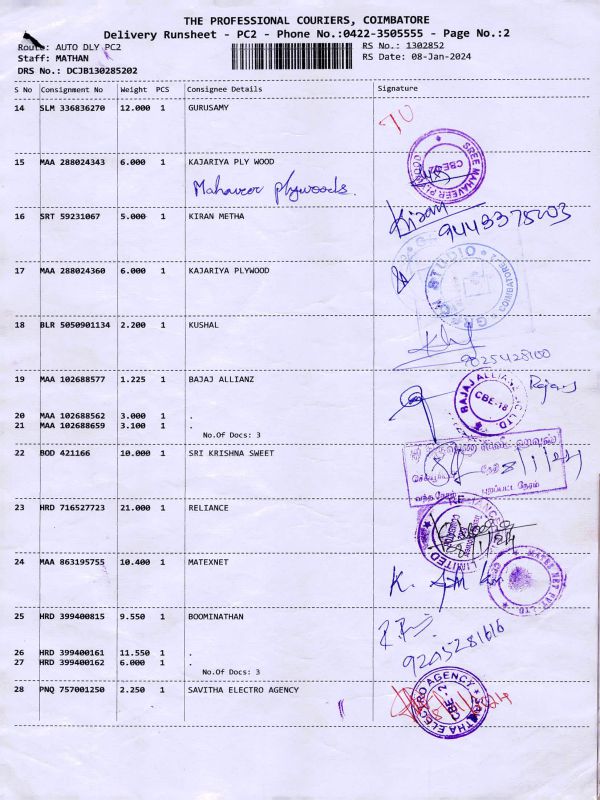 THE PROFESSIONAL COURIERS, COIMBATORE
Delivery Runsheet - PC2 - Phone No.:0422-3505555 - Page No.:2
Route: AUTO DLY PC2 RS No.: 1302852
Staff: MATHAN RS Date: 08-Jan-2024
DRS No.: DCJB130285202
S No Consignment No Weight PCS Consignee Details Signature
14 SLM 336836270 12.000 1 GURUSAMY
15 MAA 288024343 6.000 1 KAJARIYA PLY WOOD
SREE MAHAVEER PLYWOOD CBE
Mahaveer plywoods.
16 SRT 59231067 5.000 1 KIRAN METHA
Kiran
17 MAA 288024360 6.000 1 KAJARIYA PLYWOOD
STUDIO COIMBATORE-2
18 BLR 5050901134 2.200 1 KUSHAL
19 MAA 102688577 1.225 1 BAJAJ ALLIANZ
BAJAJ ALLIANZ CBE-18 LTD.
20 MAA 102688562 3.000 1 .
21 MAA 102688659 3.100 1 .
No.Of Docs: 3
22 BOD 421166 10.000 1 SRI KRISHNA SWEET
தேதி 8/1/24
வந்த நேரம் புறப்பட்ட நேரம்
23 HRD 716527723 21.000 1 RELIANCE
LIMITED
24 MAA 863195755 10.400 1 MATEXNET
MATEX NET PVT. LTD.
25 HRD 399400815 9.550 1 BOOMINATHAN
26 HRD 399400161 11.550 1 .
27 HRD 399400162 6.000 1 .
No.Of Docs: 3
28 PNQ 757001250 2.250 1 SAVITHA ELECTRO AGENCY
SAVITHA ELECTRO AGENCY CBE-2